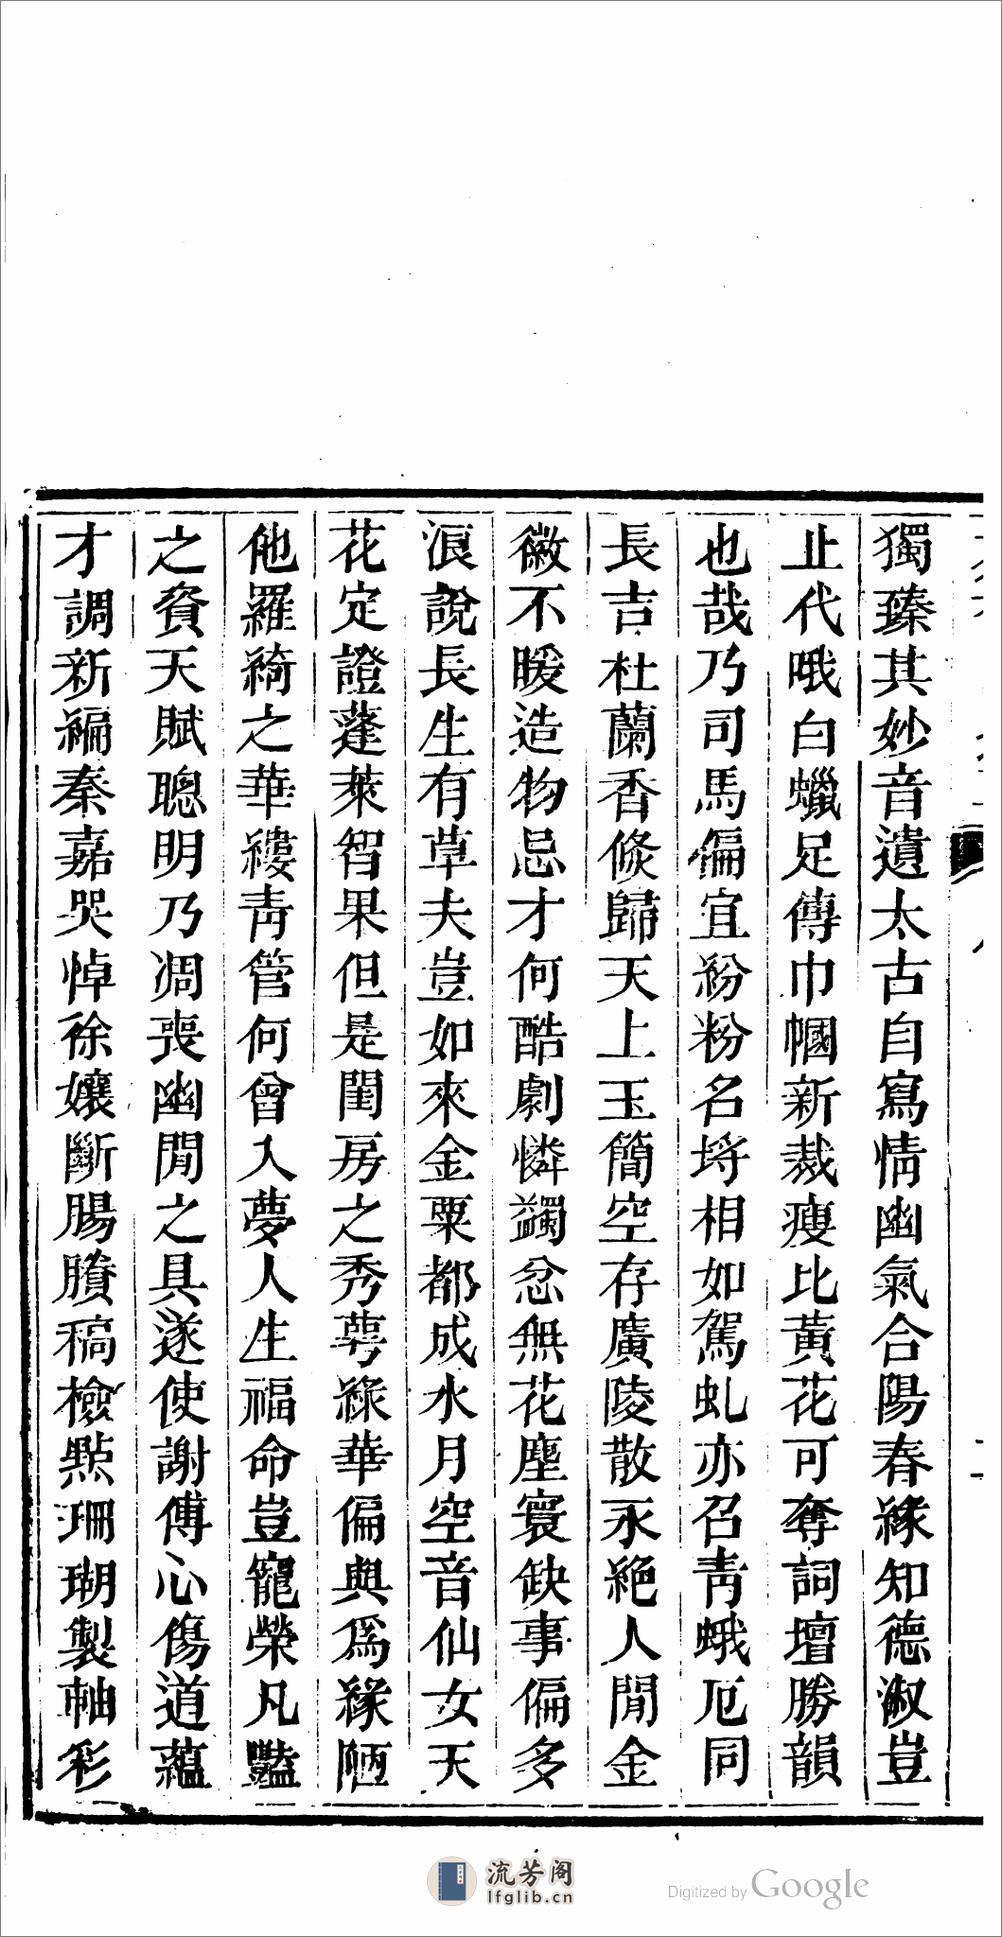 獨臻其妙音遺太古自寫情幽氣合陽春緣知德淑豈
止代哦白蠟足傳巾幗新裁瘦比黃花可奪詞壇勝韻
也哉乃司馬偏宜紛粉名埒相如駕虬亦召青蛾厄同
長吉杜蘭香倏歸天上玉簡空存廣陵散永絕人閒金
徽不暖造物忌才何酷劇憐蠲忿無花塵寰缺事偏多
浪說長生有草夫豈如來金粟都成水月空音仙女天
花定證蓬萊智果但是閨房之秀萼綠華偏與爲緣陋
他羅綺之華縷靑管何曾入夢人生福命豈寵榮凡豔
之資天賦聰明乃凋喪幽閒之具遂使謝傅心傷道蘊
才調新編秦嘉哭悼徐孃斷腸賸稿檢點珊瑚製軸彩
流芳阁
lfglib.cn
Digitized by Google